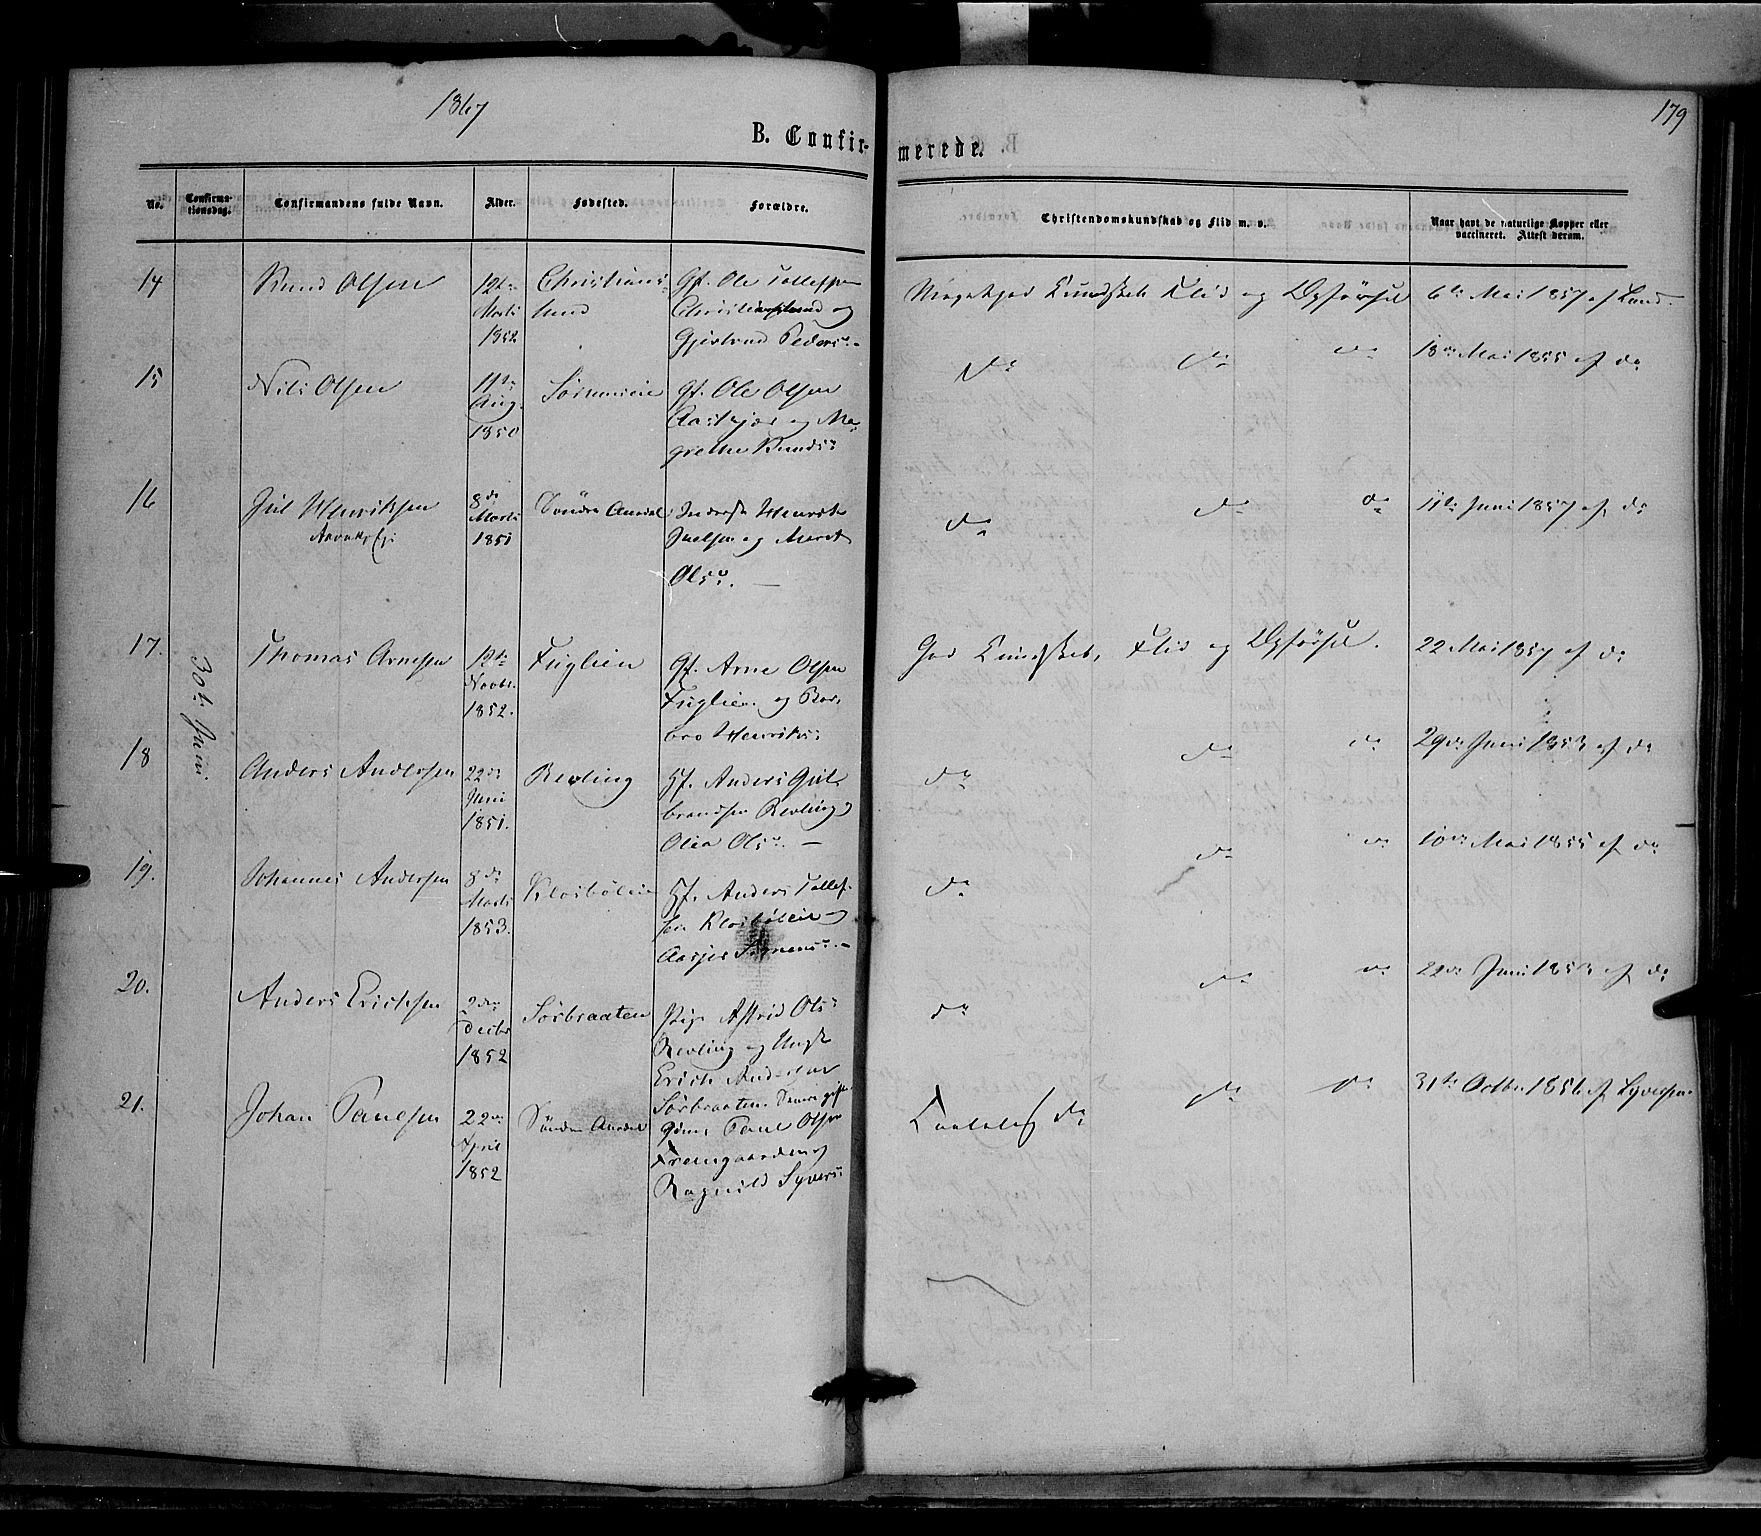 1867
179
B. Confirmerede.
No.
Confirmationsdag.
Confirmandens fulde Navn.
Alder.
Fødested.
Forældre.
Christendomskundskab og Flid m. v.
Naar havt de naturlige Kopper eller vaccineret. Attest derom.
30te Juni
14 Knud Olsen 12te Marts 1852 Christianslund Gf. Ole Tollefsen
Christianslund og
Gjertrud Peders.
Meget god Kundskab Flid og Opførsel 6te Mai 1857 af Lund
15 Nils Olsen 11te Aug. 1850 Gf. Ole Olsen
og Ma
grethe Knudsd.
do do do 18de Mai 1855 af do
16 Juel Henriksen 8de Marts 1851 Søndre Aurdal Inderst Henrik
Juelsen og Marit
Olsd.
do do do 11te Juni 1857 af do
17. Thomas Arnesen 12te Novbr. 1852. Fuglien Gf. Arne Olsen
Fuglien og Bar
bro Henriksd.
God Kundskab, Flid og Opførsel. 22 Mai 1857 af do
18 Anders Andersen 22de Juni 1851. Revling Hf. Anders Gul
brandsen Revling og
Olea Olsd.
do do do 29de Juni 1853 af do
19. Johannes Andersen 8de Marts 1853. Klosbøleie Hf. Anders Tollef
sen Klosbøleie og
do do do 10de Mai 1855 af do
20. Anders Ericksen 2den Decbr 1852 Sørbraaten Pige Astrid Olsd.
Revling og Ungk.
Erick Andersen
Sørbraaten
do do do 22de Juni 1853 af do
21. Johan Paulsen 22de April 1852 Søndre Aurdal Paul Olsen
Fremgaarden og
Ragnild Syversd.
do do do 31te Octbr. 1856 af Syversen